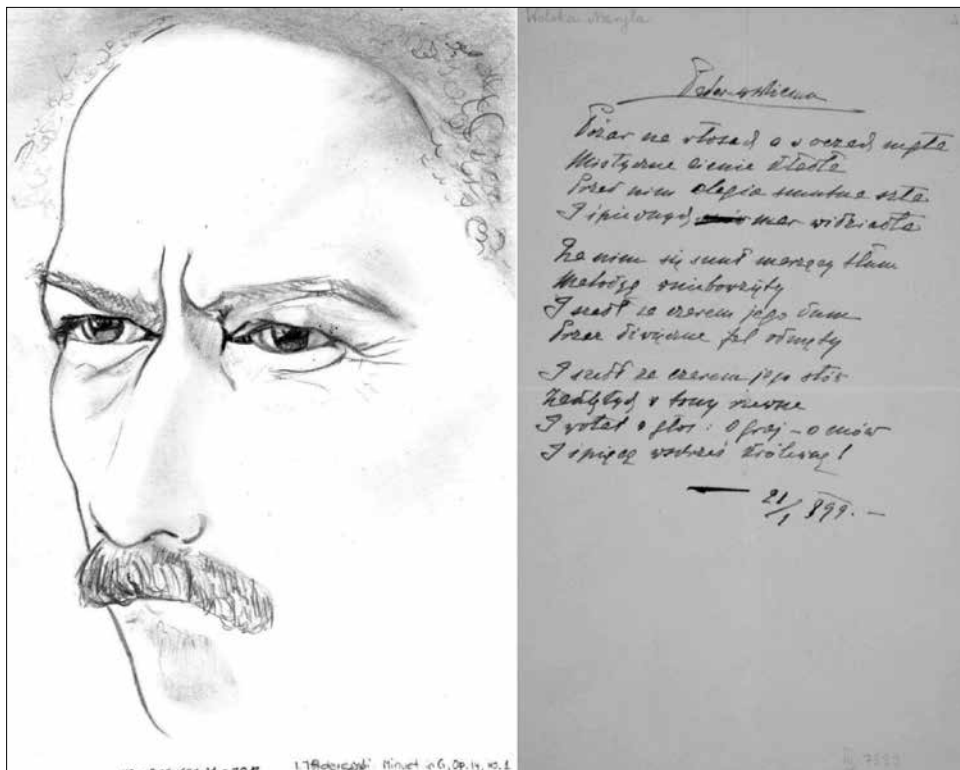 I. J. Paderewski Minuet in G, Op. 14, no. 1
Wolska Maryla
Paderewskiemu
Pożar na włosach a w oczach mgła
Mistyczne cienie kładła
Przed nim elegia smutna szła
I śpiewnych mar widziadła
Za nim się snuł marzący tłum
Melodyą wniebowzięty
I szedł za czarem jego dum
Przez dźwięczne fal odmęty
I szedł za czarem jego słów
Zaklętych w tony rzewne
I wołał w głos: O graj – o mów
I śpiącą wskrześ królewnę!
21/I 899. –